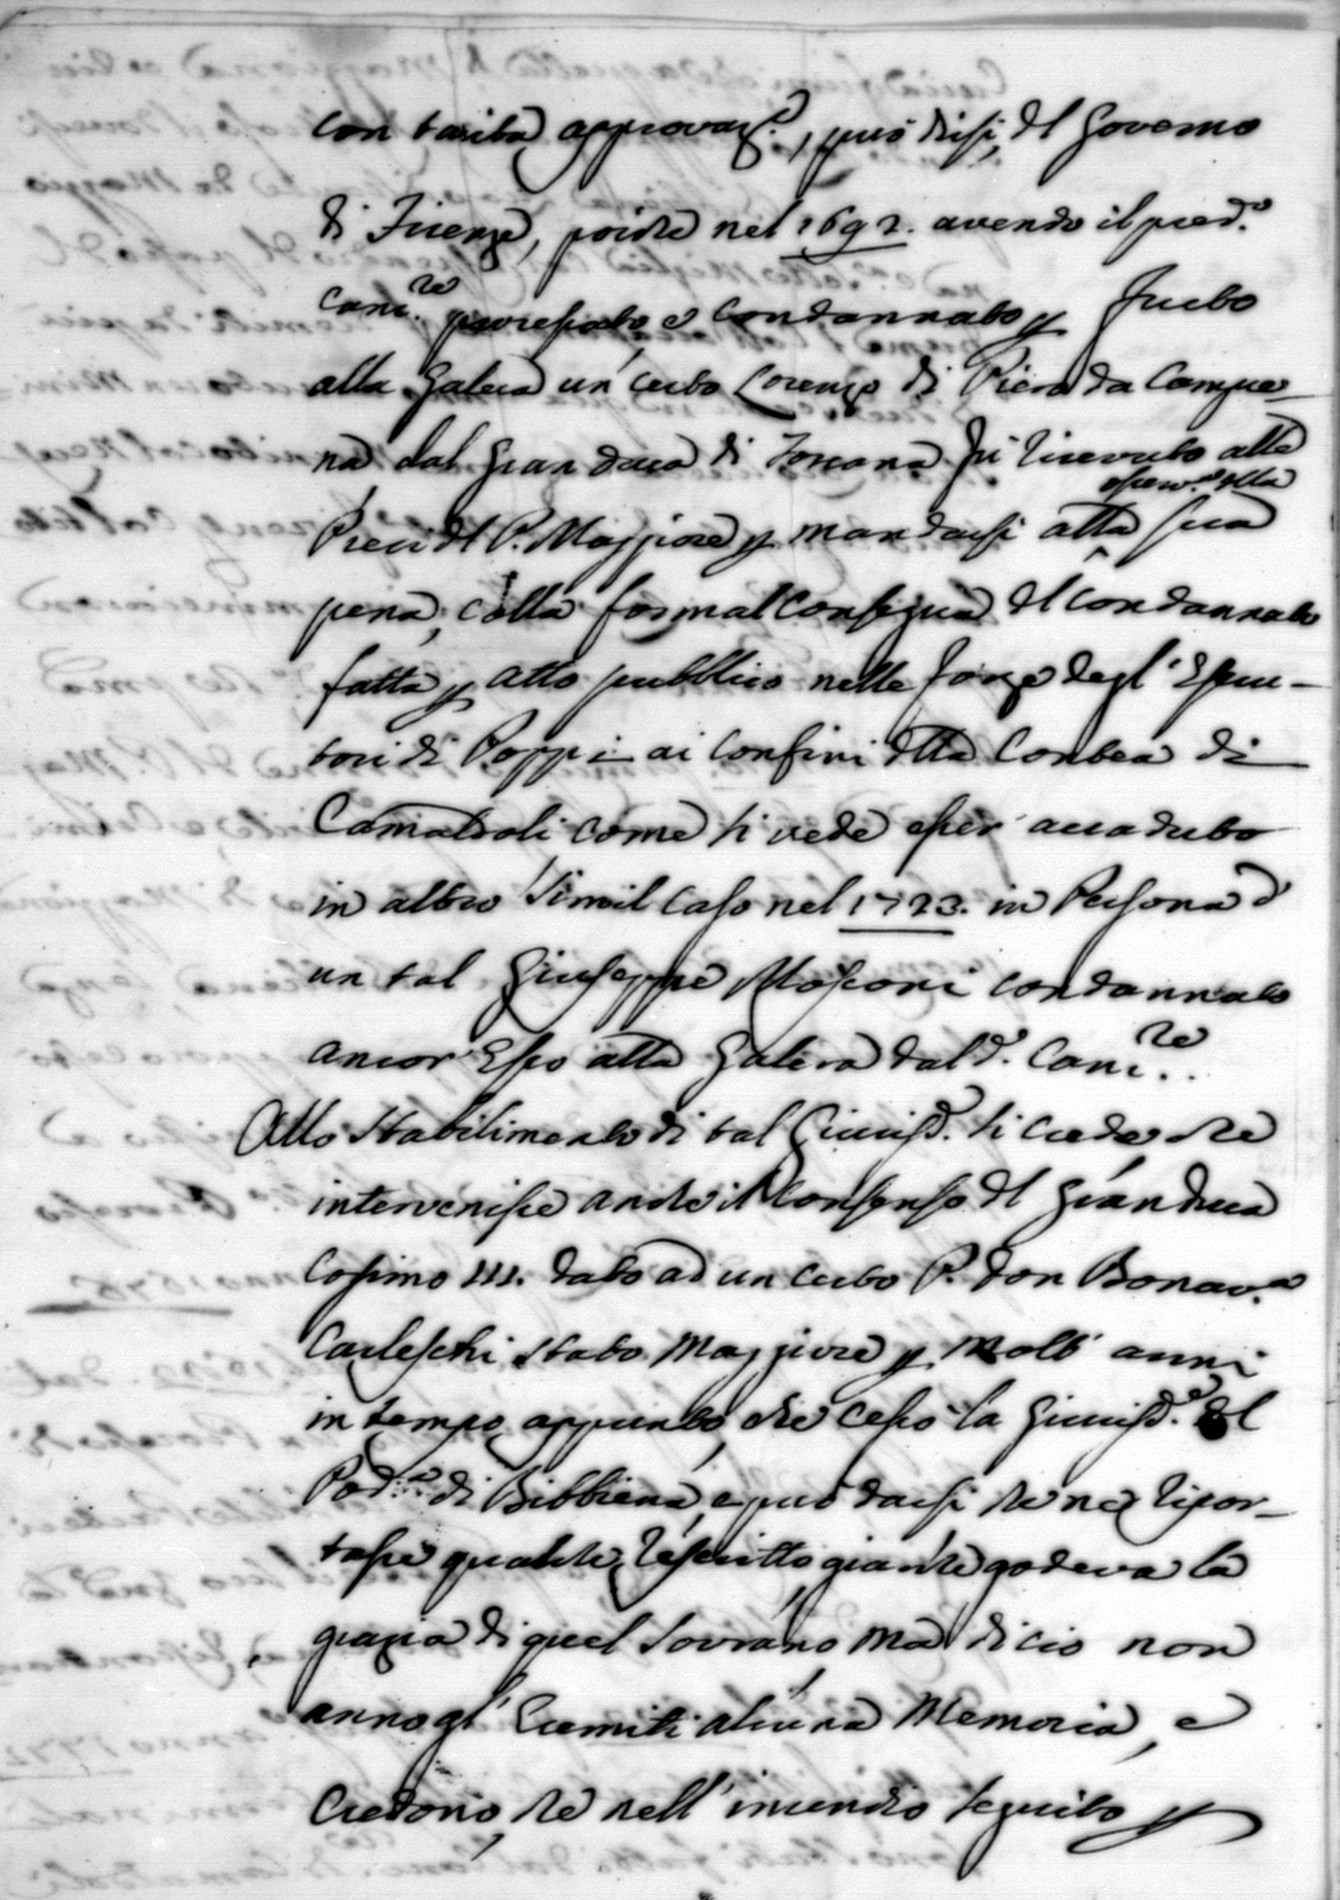 con tacita approvaz.e, può dirsi, del Governo
di Firenze, poiche nel 1692. avendo il pred.o
Canc.re processato e condannato p furto
alla Galera un' certo Lorenzo di Piero da Campre=
na dal Gran duca di Toscana fù ricevuto alle
Preci del P. Maggiore p mandarsi alla esecuz.e della sua
pena, colla formal Consegna del condannato
fatta p atto pubblico nelle forze degl' Esecu-
tori di Poppi ai confini della Contea di
Camaldoli come si vede esser accaduto
in altro simil caso nel 1723. in Persona d'
un tal Giuseppe Mosconi condannato
ancor Esso alla Galera dal d.o Canc.re.
Allo stabilimento di tal Giurisd.e si crede che
intervenisse anche il Consenso del Gran duca
Cosimo III. dato ad un certo P. Don Bonav.a
Carleschi stato Maggiore p molt' anni
in tempo appunto, che cessò la Giurisd.e del
Pod.a di Bibbiena, e può darsi che ne ripor-
tasse qualche rescritto, giacche godeva la
grazia di quel Sovrano, ma di ciò non
anno gl' Eremiti alcuna Memoria, e
credono, che nell' incendio seguito p